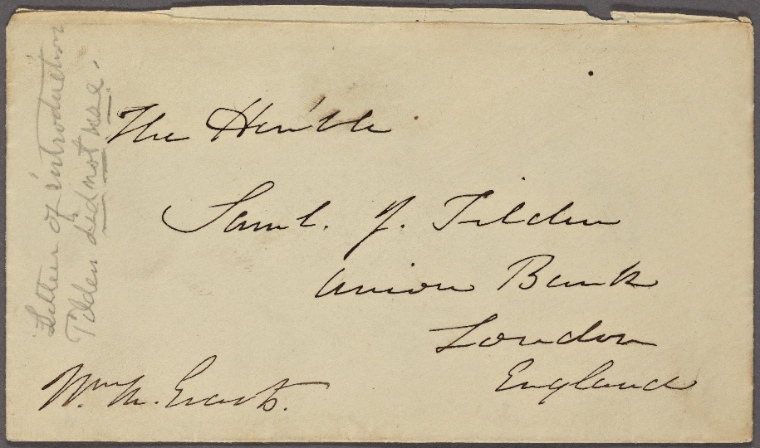 The Hon'ble
Saml. J. Tilden
Union Bank
London
England
Wm. M. Evarts.
Letter of introduction
Tilden did not use.